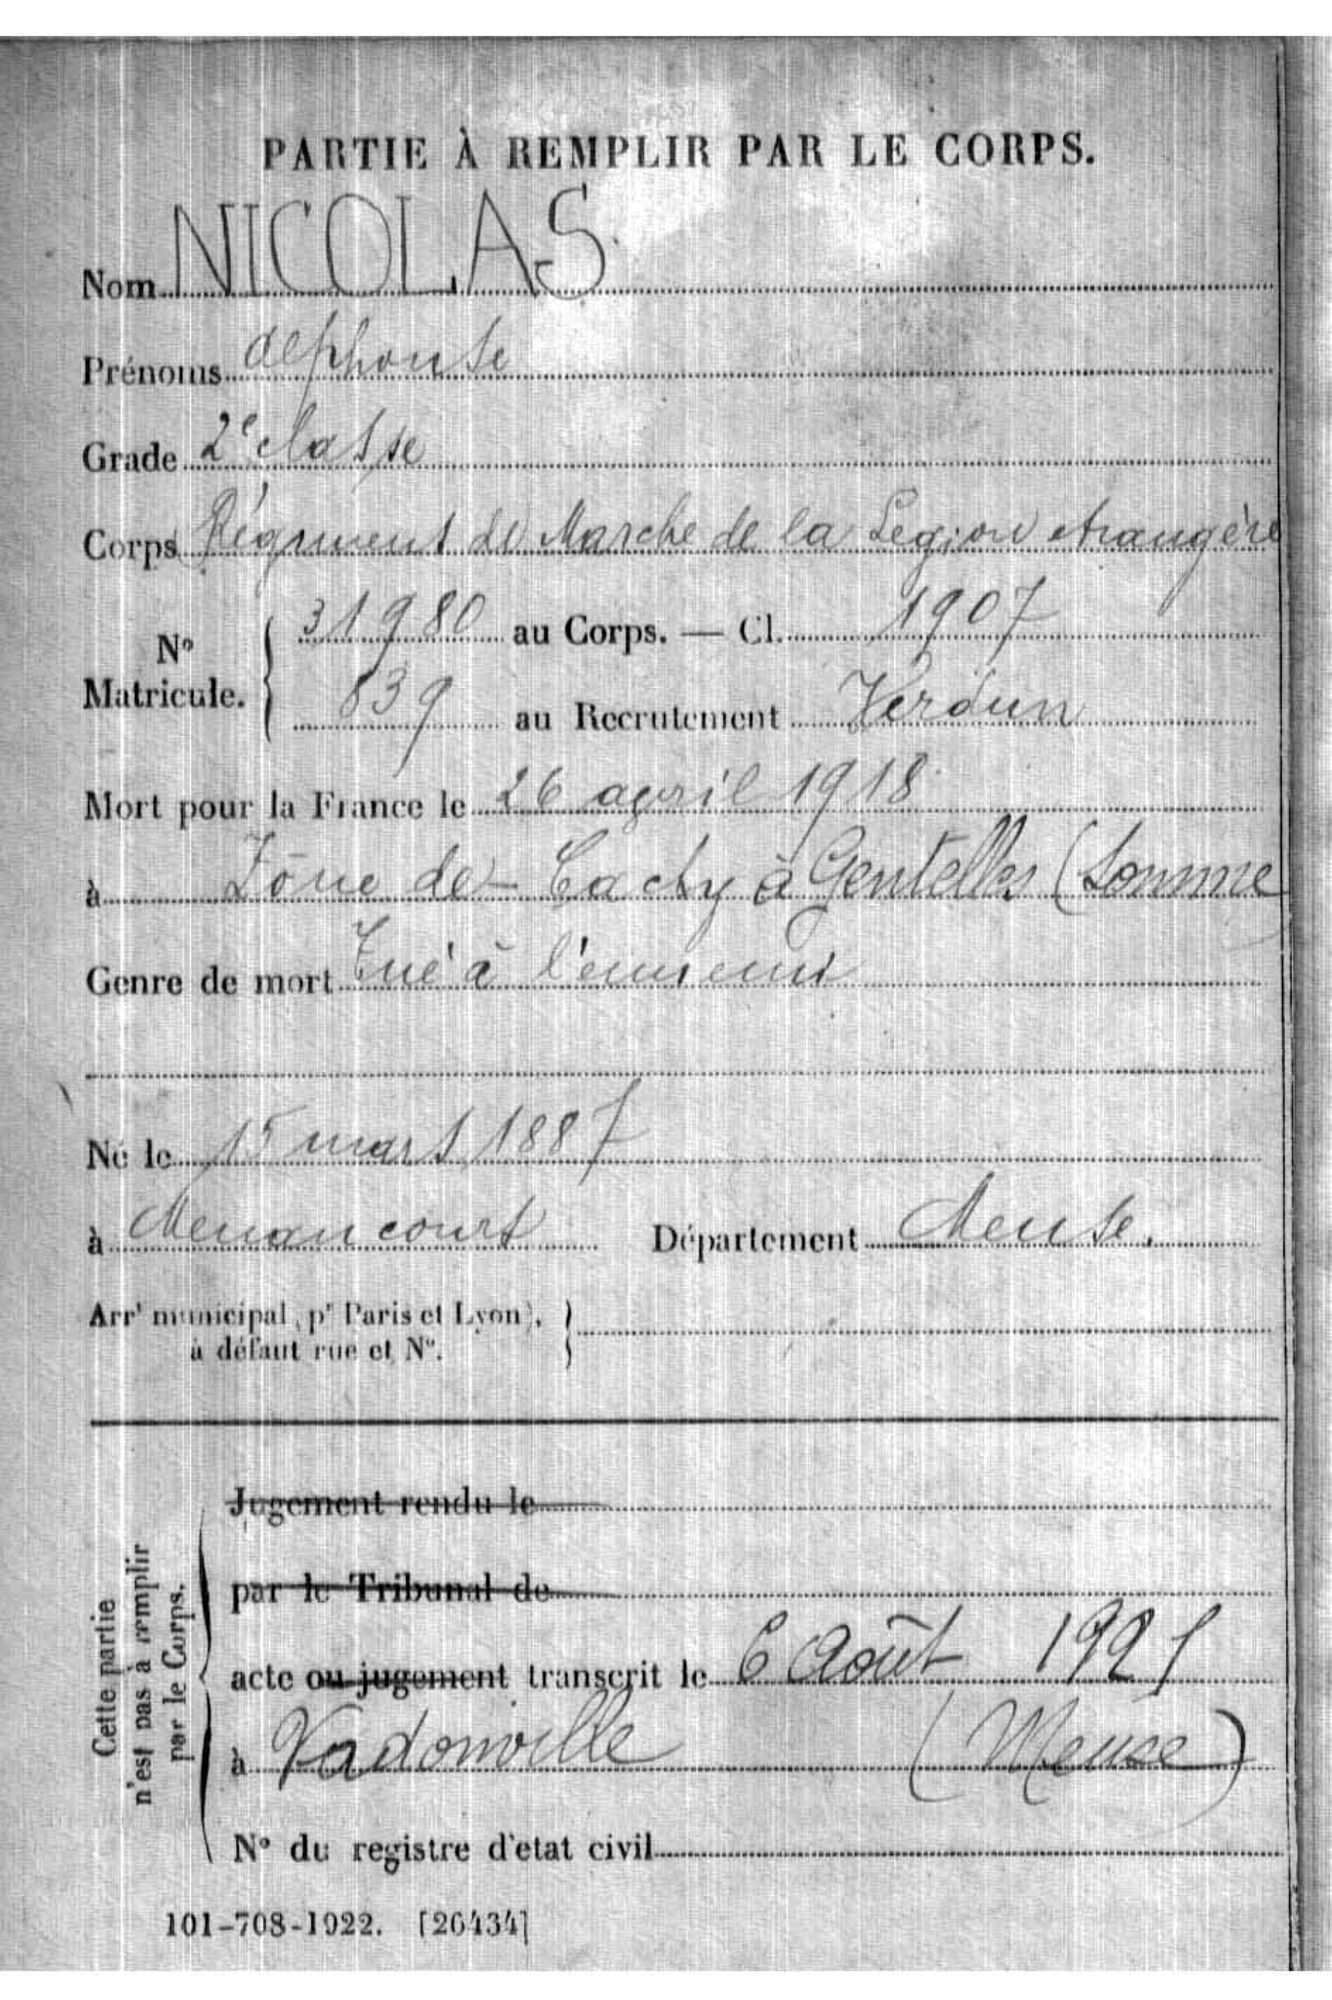 PARTIE À REMPLIR PAR LE CORPS.
Nom NICOLAS
Prénoms alphonse
Grade 2e classe
Corps Régiment de Marche de la Légion étrangère
No Matricule. 31980 au Corps. — Cl. 1907
839 au Recrutement Verdun
Mort pour la France le 26 avril 1918
à Zône de Cachy à Gentelles (Somme
Genre de mort Tué à l'ennemi
Né le 15 mars 1887
à Menaucourt Département Meuse.
Arrt municipal (pr Paris et Lyon),
à défaut rue et No.
Cette partie
n'est pas à remplir
par le Corps.
Jugement rendu le
par le Tribunal de
acte ou jugement transcrit le 6 Août 1921
à Vadonville (Meuse)
No du registre d'état civil
101-708-1922. [26434]